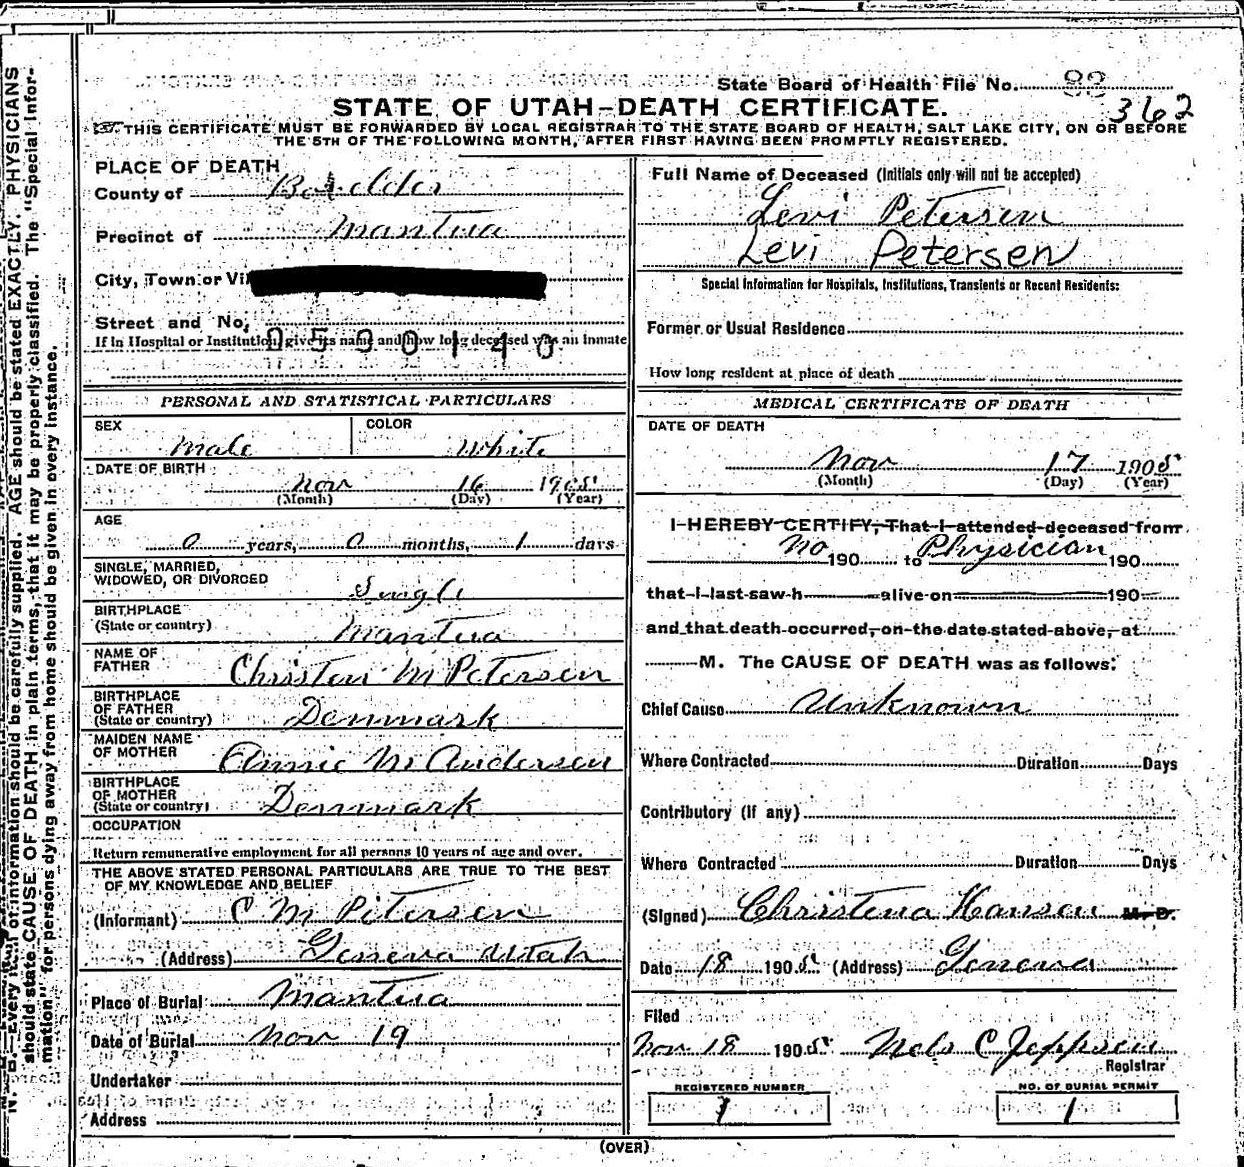 State Board of Health File No. 82
362
STATE OF UTAH-DEATH CERTIFICATE.
THIS CERTIFICATE MUST BE FORWARDED BY LOCAL REGISTRAR TO THE STATE BOARD OF HEALTH, SALT LAKE CITY, ON OR BEFORE
THE 5TH OF THE FOLLOWING MONTH, AFTER FIRST HAVING BEEN PROMPTLY REGISTERED.
PLACE OF DEATH
County of Boxelder
Precinct of Mantua
City, Town or Vil
Street and No.
0590140
If in Hospital or Institution, give its name and how long deceased was an inmate
Full Name of Deceased (Initials only will not be accepted)
Levi Petersen
Levi Petersen
Special Information for Hospitals, Institutions, Transients or Recent Residents:
Former or Usual Residence
How long resident at place of death
PERSONAL AND STATISTICAL PARTICULARS
SEX Male COLOR White
DATE OF BIRTH
Nov 16 1905
(Month) (Day) (Year)
AGE
0 years, 0 months, 1 days
SINGLE, MARRIED,
WIDOWED, OR DIVORCED Single
BIRTHPLACE
(State or country) Mantua
NAME OF
FATHER Christen M Petersen
BIRTHPLACE
OF FATHER
(State or country) Denmark
MAIDEN NAME
OF MOTHER Annie M Andersen
BIRTHPLACE
OF MOTHER
(State or country) Denmark
OCCUPATION
Return remunerative employment for all persons 10 years of age and over.
THE ABOVE STATED PERSONAL PARTICULARS ARE TRUE TO THE BEST
OF MY KNOWLEDGE AND BELIEF
(Informant) C M Petersen
(Address) Geneva Utah
Place of Burial Mantua
Date of Burial Nov 19
Undertaker
Address
MEDICAL CERTIFICATE OF DEATH
DATE OF DEATH
Nov 17 1905
(Month) (Day) (Year)
I HEREBY CERTIFY, That I attended deceased from
no 190 to Physician 190
that I last saw h alive on 190
and that death occurred, on the date stated above, at
M. The CAUSE OF DEATH was as follows:
Chief Cause Unknown
Where Contracted Duration Days
Contributory (if any)
Where Contracted Duration Days
(Signed) Christena Hansen M. D.
Date 18 1905 (Address) Geneva
Filed
Nov 18 1905 Nels C Jeppsen
Registrar
REGISTERED NUMBER
1
NO. OF BURIAL PERMIT
1
(OVER)
N. B.—Every item of information should be carefully supplied. AGE should be stated EXACTLY. PHYSICIANS
should state CAUSE OF DEATH in plain terms, that it may be properly classified. The "Special Infor-
mation" for persons dying away from home should be given in every instance.